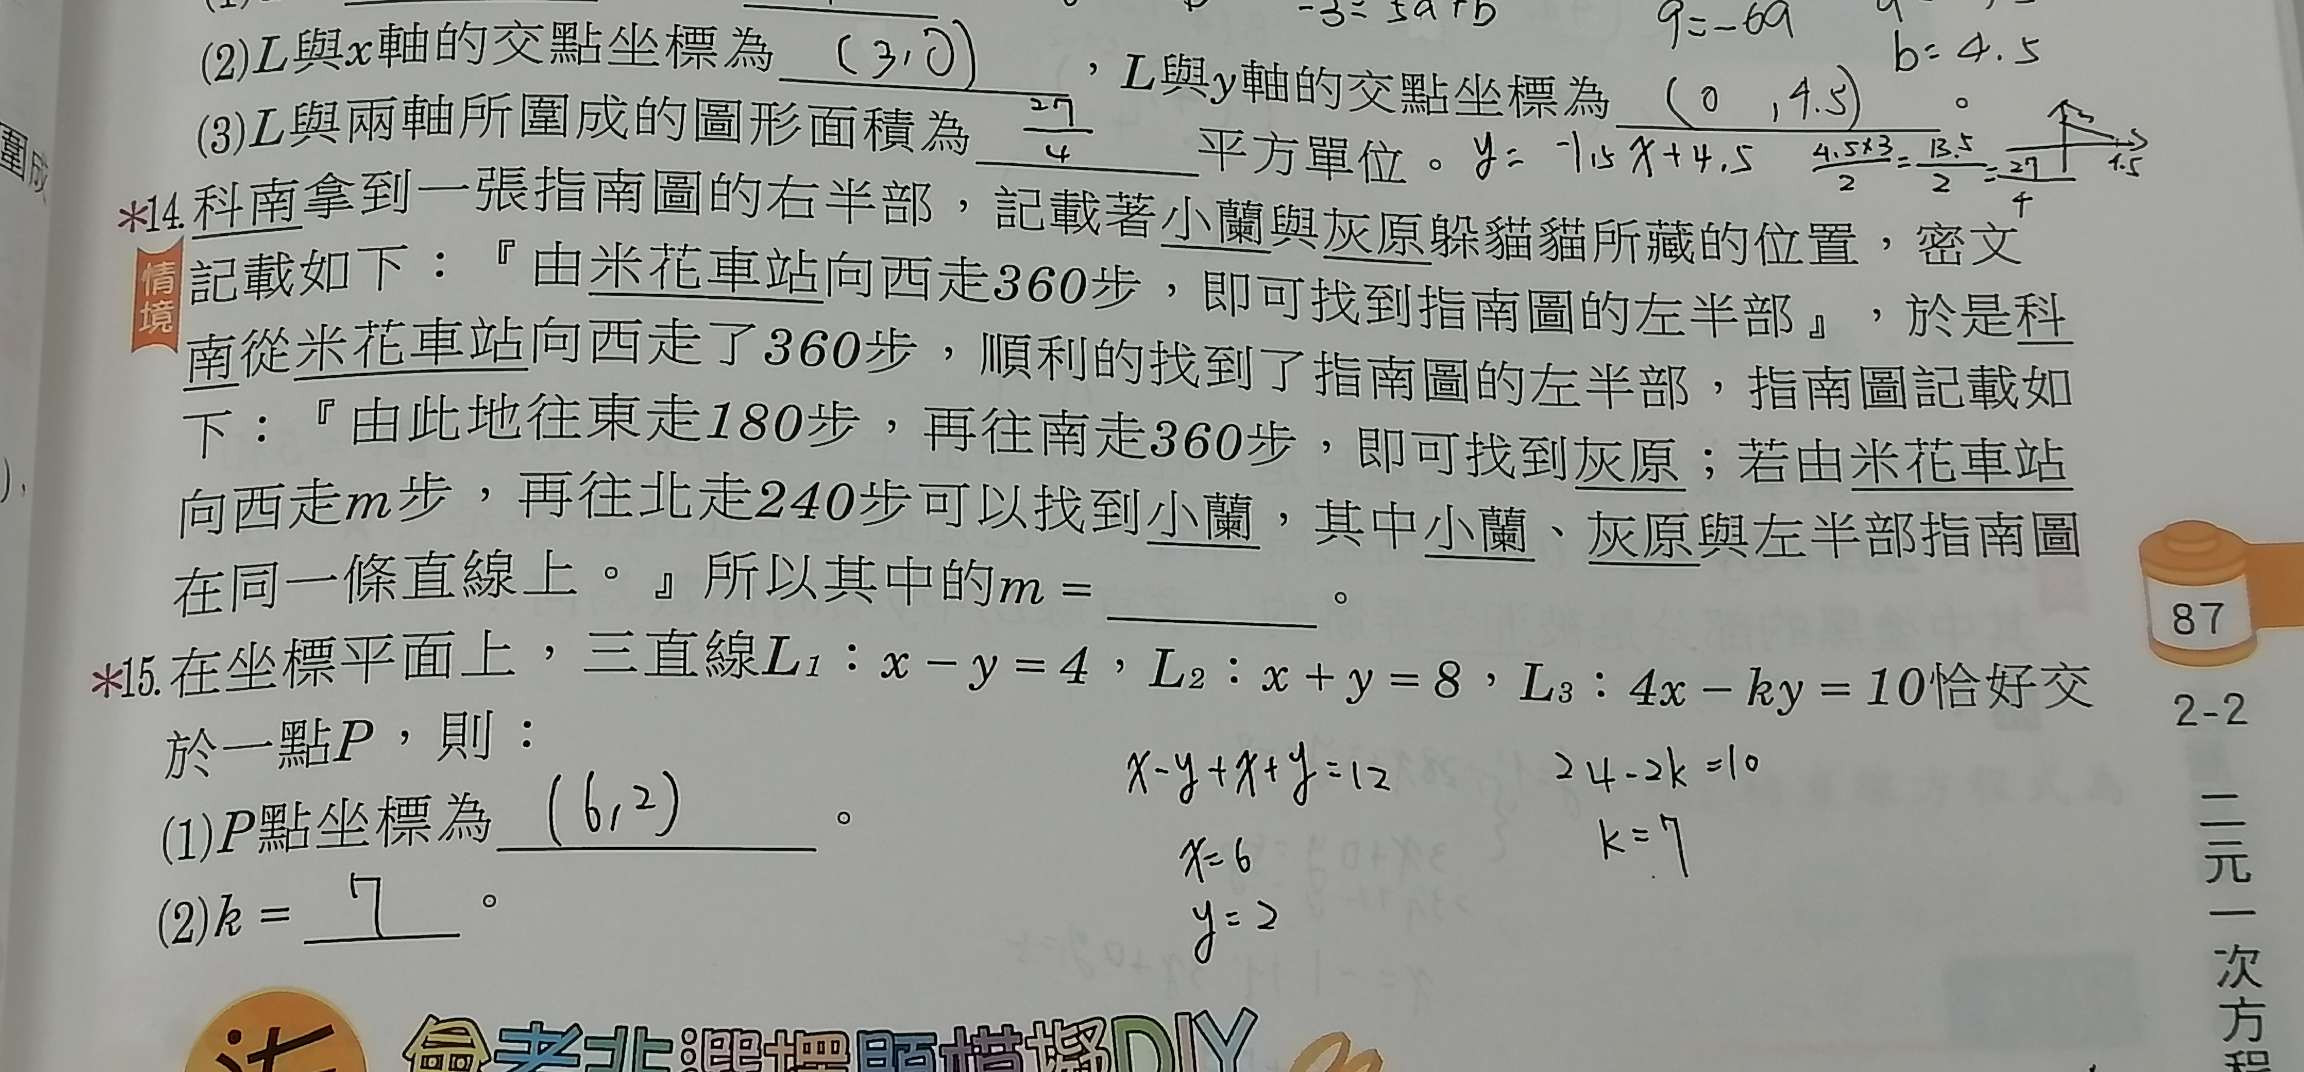 -3=5a+b
9=-6a
b=4.5
(2)L與x軸的交點坐標為 (3,0) ，L與y軸的交點坐標為 (0,4.5) 。
(3)L與兩軸所圍成的圖形面積為 27/4 平方單位。 y=-1.5x+4.5 4.5×3/2=13.5/2=27/4
1.5
*14.科南拿到一張指南圖的右半部，記載著小蘭與灰原躲貓貓所藏的位置，密文
情境
記載如下：『由米花車站向西走360步，即可找到指南圖的左半部』，於是科
南從米花車站向西走了360步，順利的找到了指南圖的左半部，指南圖記載如
下：『由此地往東走180步，再往南走360步，即可找到灰原；若由米花車站
向西走m步，再往北走240步可以找到小蘭，其中小蘭、灰原與左半部指南圖
在同一條直線上。』所以其中的m=＿＿＿。
*15.在坐標平面上，三直線L1：x-y=4，L2：x+y=8，L3：4x-ky=10恰好交
於一點P，則：
(1)P點坐標為 (6,2) 。
(2)k= 7 。
x-y+x+y=12
x=6
y=2
24-2k=10
k=7
圍成
),
87
2-2
二元一次方程
會考非選擇題模擬DIY